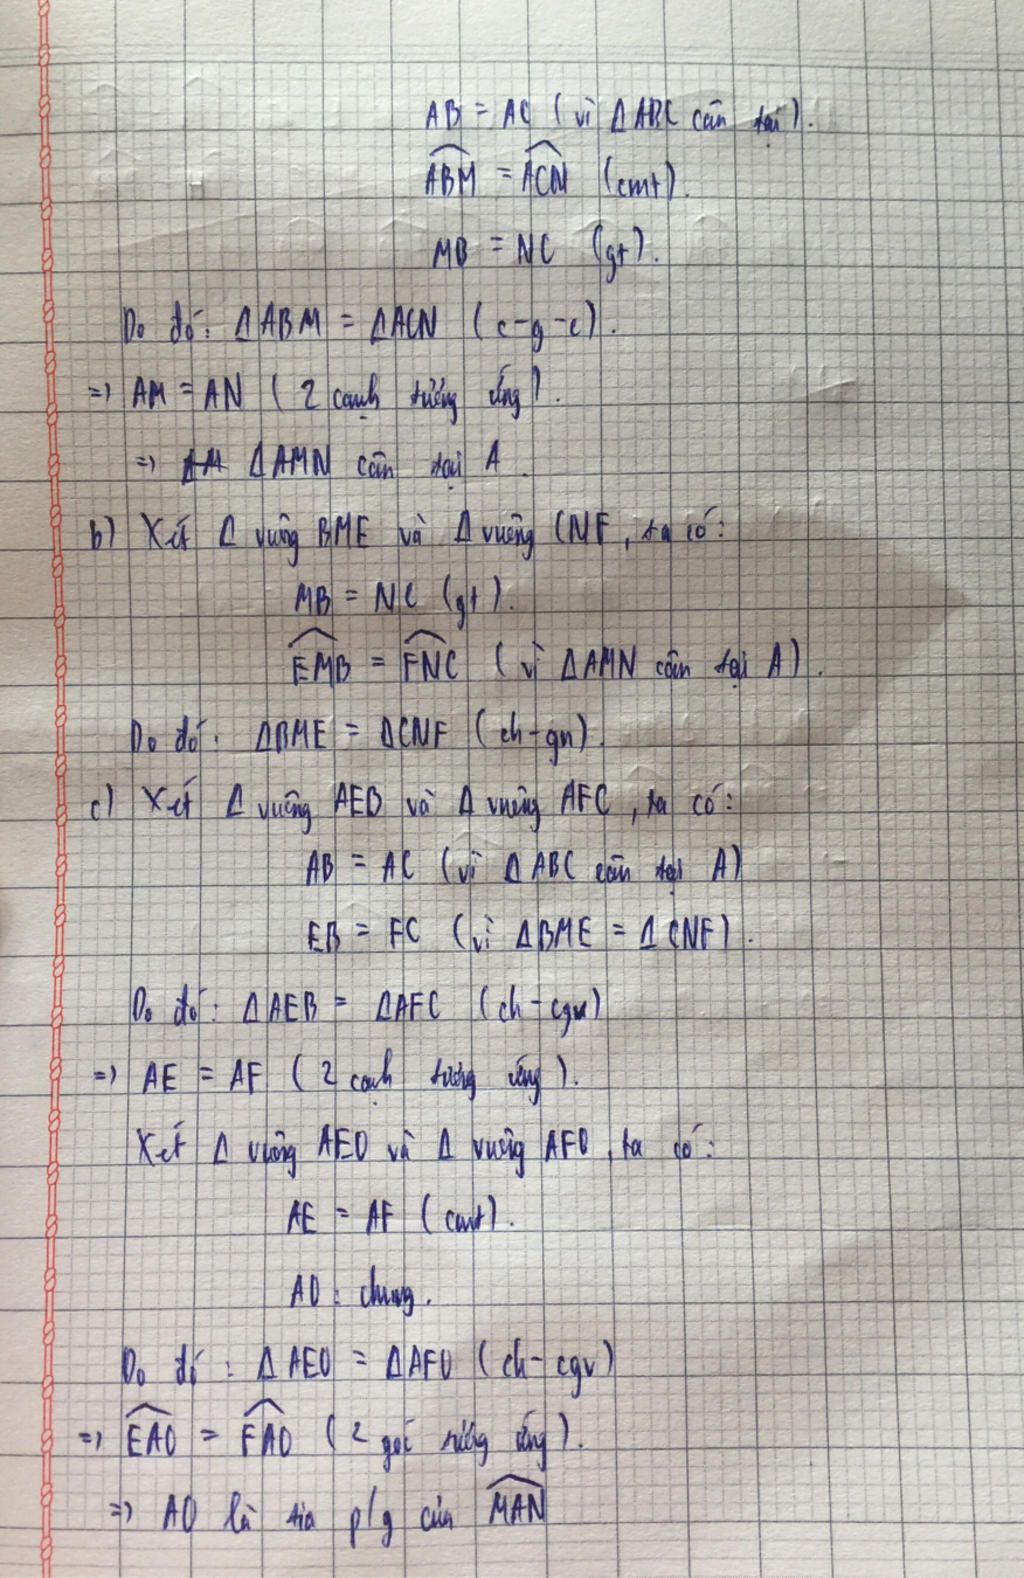 AB = AC (vì ΔABC cân tại).
$\widehat{ABM}$ = $\widehat{ACN}$ (cmt).
MB = NC (gt).
Do đó: ΔABM = ΔACN (c-g-c).
=> AM = AN (2 cạnh tương ứng).
=> ~~AM~~ ΔAMN cân tại A.
b) Xét Δ vuông BME và Δ vuông CNF, ta có:
MB = NC (gt).
$\widehat{EMB}$ = $\widehat{FNC}$ (vì ΔAMN cân tại A).
Do đó: ΔBME = ΔCNF (ch-gn).
c) Xét Δ vuông AEB và Δ vuông AFC, ta có:
AB = AC (vì ΔABC cân tại A)
EB = FC (vì ΔBME = ΔCNF).
Do đó: ΔAEB = ΔAFC (ch-cgv)
=> AE = AF (2 cạnh tương ứng).
Xét Δ vuông AEO và Δ vuông AFO, ta có:
AE = AF (cmt).
AO: chung.
Do đó: ΔAEO = ΔAFO (ch-cgv)
=> $\widehat{EAO}$ = $\widehat{FAO}$ (2 góc tương ứng).
=> AO là tia p/g của $\widehat{MAN}$